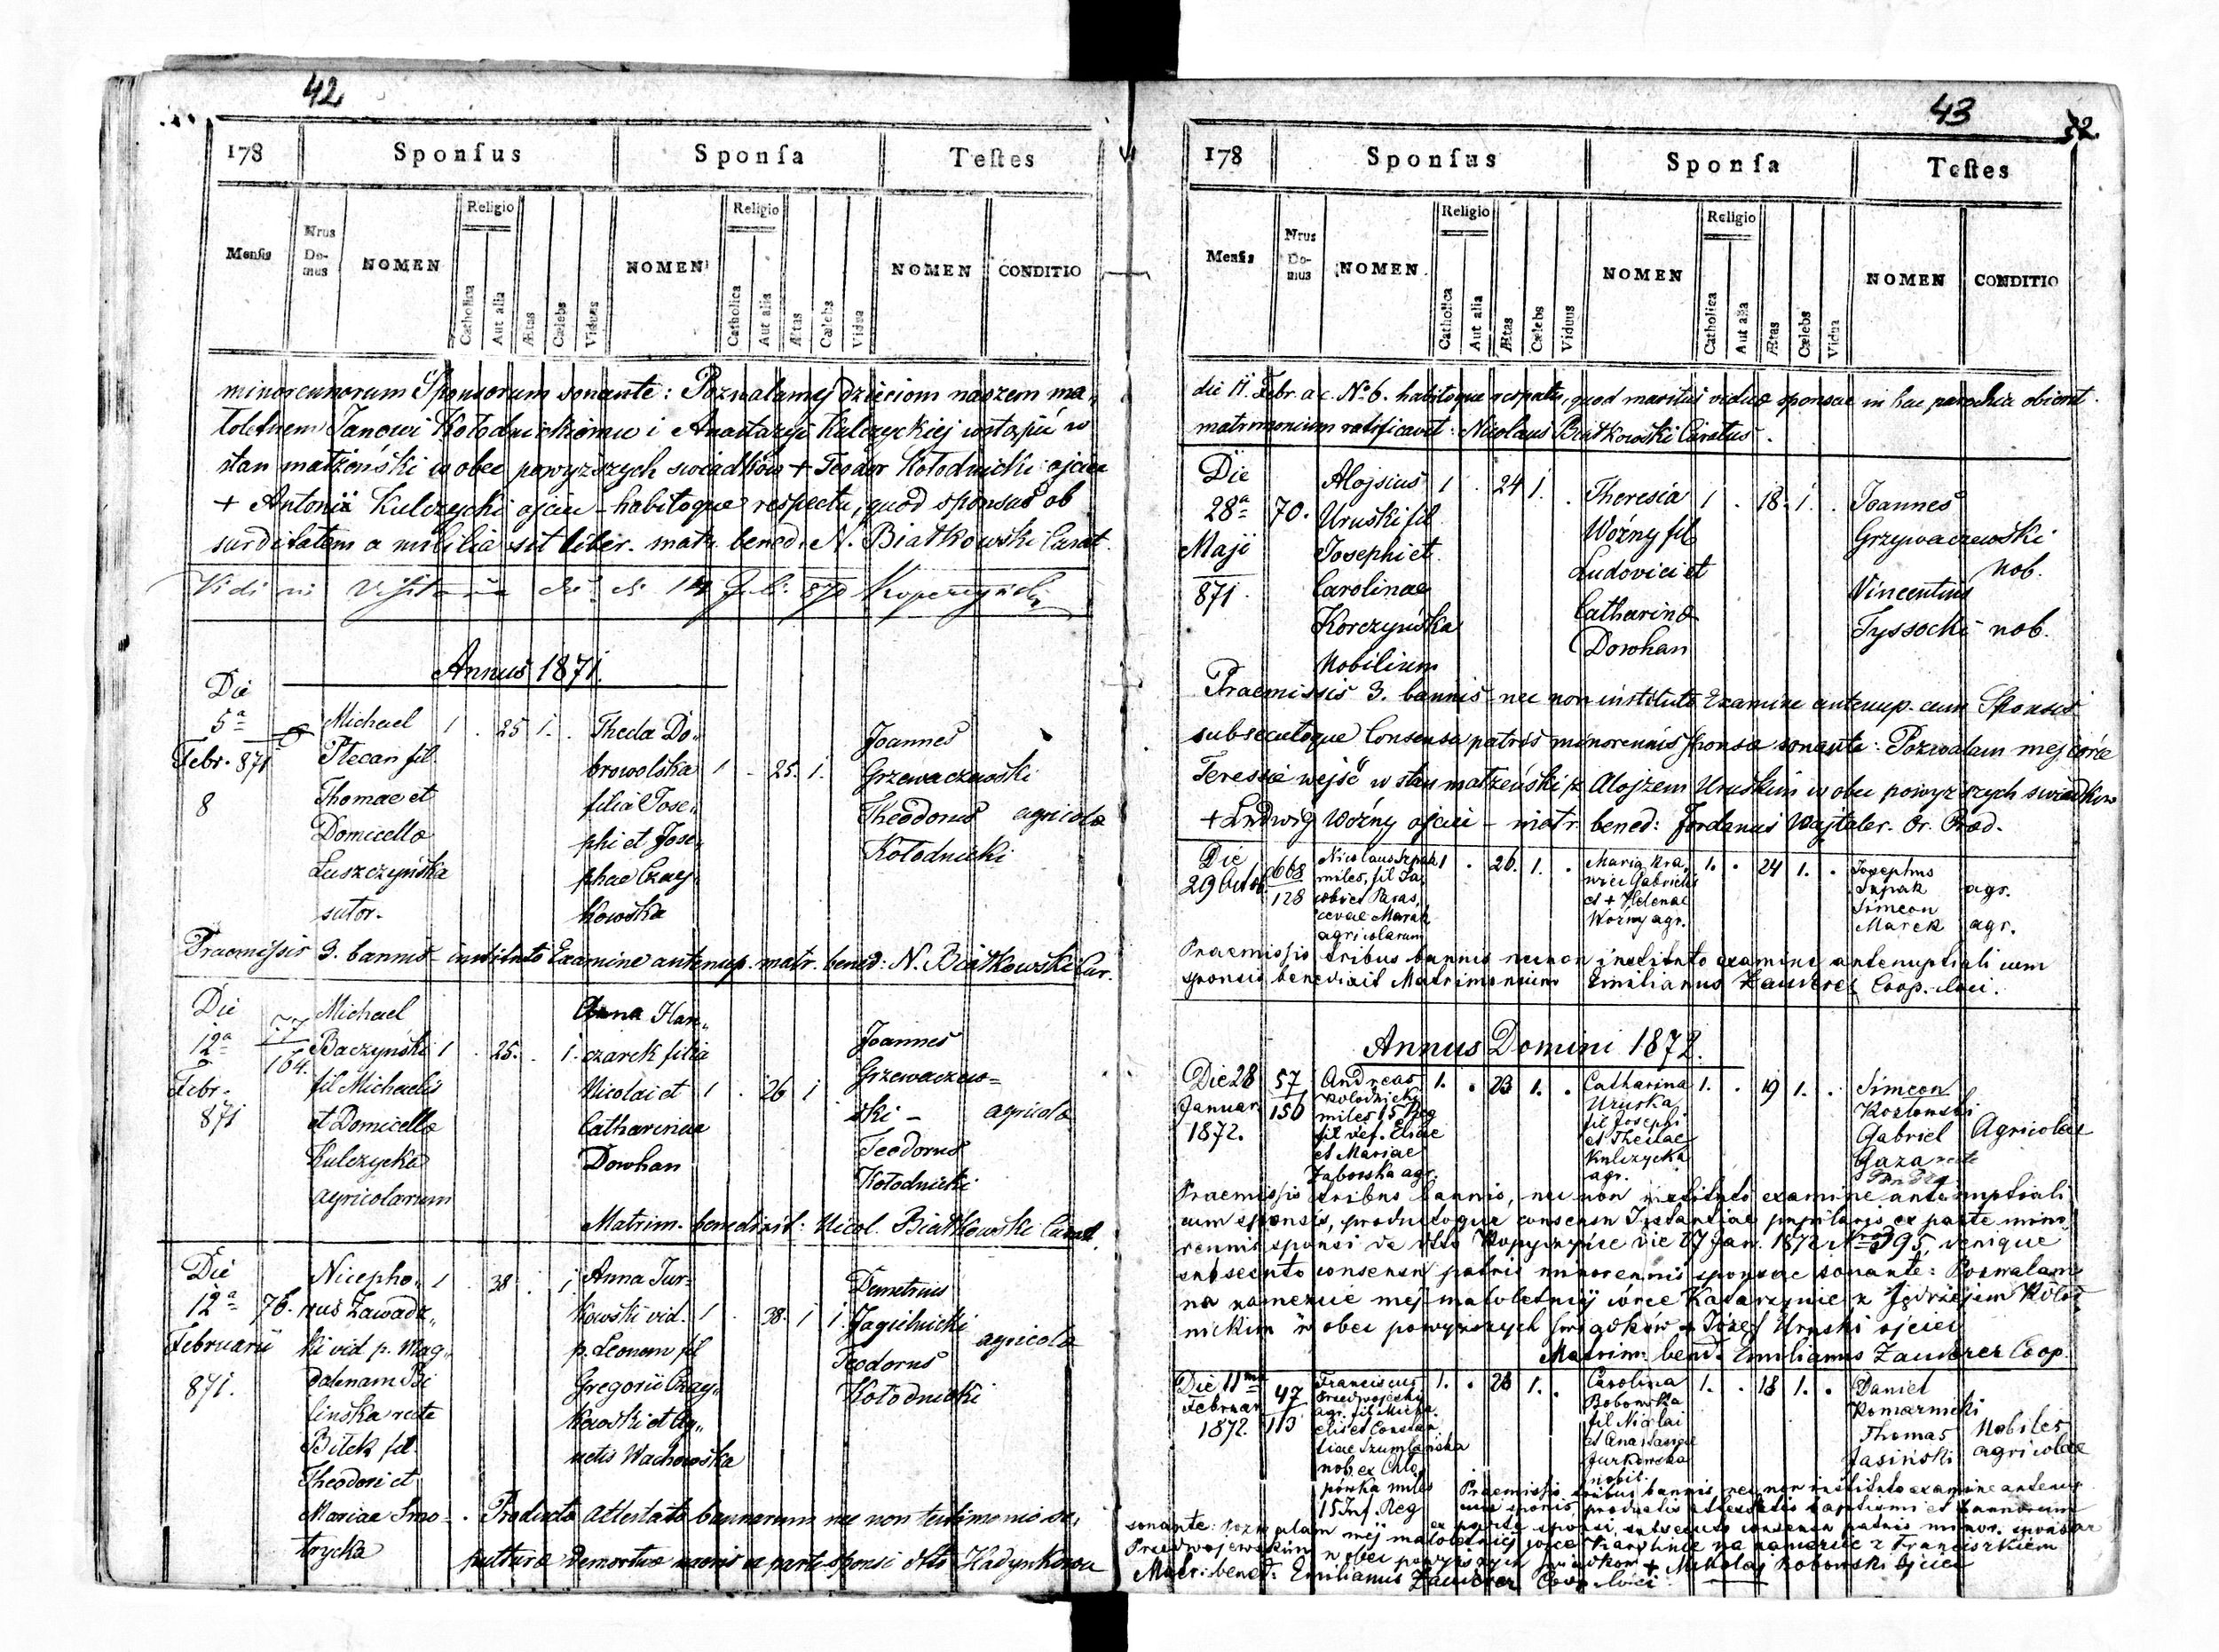 42
178 Sponsus Sponsa Testes
Mensis Nrus Domus NOMEN Religio Catholica Aut alia Ætas Cælebs Viduus NOMEN Religio Catholica Aut alia Ætas Cælebs Vidua NOMEN CONDITIO
minorennorum Sponsorum sonante: Pozwalamy dzieciom naszem ma„
loletnem Janowi Kołodnickiemu i Anastazyi Kulczyckiej wstąpić w
stan małżeński w obec powyższych swiadków + Teodor Kołodnicki ojciec
+ Antoni Kulczycki ojciec – habitoque respectu, quod sponsus ob
surditatem a militia sit liber. matr. bened. N. Białkowski Curat.
Vidi in
Annus 1871.
Die
5a
Febr. 871
8
Michael 1 . 25 1. .
Plecan fil.
Thomae et
Domicellae
Łuszczyńska
sutor.
Thecla Do„
browolska 1 . 25. 1.
filia Jose„
phi et Jose„
phae Czay„
kowska
Joannes
Grzewaczewski
Theodorus agricolae
Kołodnicki
Praemissis 3. bannis – instituto Examine antenup. matr. bened: N. Białkowski Cur.
Die
12a
Febr.
871
77
164.
Michael
Baczyński 1 . 25. . 1.
fil Michaelis
et Domicellae
Kulczycka
agricolarum
Anna Har„
czarek filia
Nicolai et 1 . 26 1
Catharinae
Dowhan
Joannes
Grzewaczew=
ski – agricolae
Teodorus
Kołodnicki
Matrim. benedixit: Nicol. Białkowski Curat.
Die
12a
Februarii
871.
76.
Nicepho„ 1 . 38 . 1
rus Zawadz„
ki vid p. Mag„
dalenam Bi
linska recte
Bilek fil.
Theodori et
Mariae Smo=
trycka
Anna Jur=
kowski vid. 1 . 38. 1 1.
p. Leonem fil
Gregorii Czay„
kowski et Ag„
netis Wachowska
Demetrius
Jagielnicki
agricolae
Teodorus
Kołodnicki
Producto attestato bannorum nec non testimonio se„
pulturae demortuae uxoris ex parte sponsi dtto Hadynkowce
43
32.
178 Sponsus Sponsa Testes
Mensis Nrus Domus NOMEN Religio Catholica Aut alia Ætas Cælebs Viduus NOMEN Religio Catholica Aut alia Ætas Cælebs Vidua NOMEN CONDITIO
die 11. Febr. a c. No 6. habitoque respectu, quod maritus viduae sponsae in hac parochia obierit.
matrimonium ratificavit: Nicolaus Białkowski Curatus.
Die
28a
Maji
871.
70.
Alojsius 1 . 24 1. .
Uruski fil
Josephi et
Carolinae
Korczyńska
Nobilium
Theresia 1 . 18. 1. .
Woźny fil
Ludovici et
Catharinae
Dowhan
Joannes
Grzywaczewski
nob.
Vincentius
Tyssocki nob.
Praemissis 3. bannis nec non instituto Examine antenup. cum Sponsis
subsecutoque Consensu patris minorennis sponsae sonante: Pozwalam mej córce
Teressie wejść w stan małżeński z Alojzem Uruskim w obec powyższych swiadków
+ Ludwig Woźny ojciec – matr. bened: Jordanus Wajtaler. Or. Praed.
Die
29 Octob.
668
128
Nicolaus Szpak 1 . 26. 1. .
miles, fil Ja„
cobi et Paras„
cevae Marak
agricolarum
Maria Kra„ 1. . 24 1. .
wiec Gabrielis
et + Helenae
Woźny agr.
Josephus
Szpak agr.
Simeon
Marek agr.
Praemissis tribus bannis necnon instituto examine antenuptiali cum
sponsis benedixit Matrimonium Emilianus Zauderer Coop. loci.
Annus Domini 1872.
Die 28
Januar.
1872.
57
156
Andreas 1. . 23 1. .
Kolodnicki
miles 15 Reg
fil def. Eliae
et Mariae
Jaborska agr.
Catharina 1. . 19 1. .
Uruska
fil Josephi
et Theclae
Kulczycka
agr.
Simeon
Kozłowski
Gabriel Agricolae
Gaza recte
Praemissis tribus bannis, nec non instituto examine antenuptiali
cum sponsis, productoque consensu Instantiae pupilaris ex parte mino
rennis sponsi de dtto Kopyczyńce die 27 Jan. 1872 Nro 395, denique
subsecuto consensu patris minorennis sponsae sonante: Pozwalam
na zamęzcie mej małoletniej córce Katarzynie z Jędrzejem Koło„
nickim w obec powyższych swiadków + Józef Uruski ojciec
Matrim. bend. Emilianus Zauderer Coop.
Die 11ma
Februar.
1872.
47
113
Franciscus 1. . 26 1. .
Przedwojewski
agr. fil Micha„
elis et Constan„
tiae Szumlańska
nob. ex Chło„
pówka miles
15 Inf. Reg
Carolina 1. . 18 1. .
Bobowska
fil Nicolai
et Anastasiae
Jurkowska
nobil.
Daniel
Komarnicki
Thomas Nobiles
Jasiński agricolae
Praemissis tribus bannis nec non instituto examine antenup
cum sponsis productis attestatis baptismi et bannorum
ex parte sponsi, subsecuto consensu patris minor. sponsae
sonante: Pozwalam mej małoletniej córce Karolinie na zamęzcie z Franciszkiem
Przedwojewskim w obec powyższych swiadków + Mikołaj Bobowski Ojciec
Matr: bened: Emilianus Zauderer Coop. loci